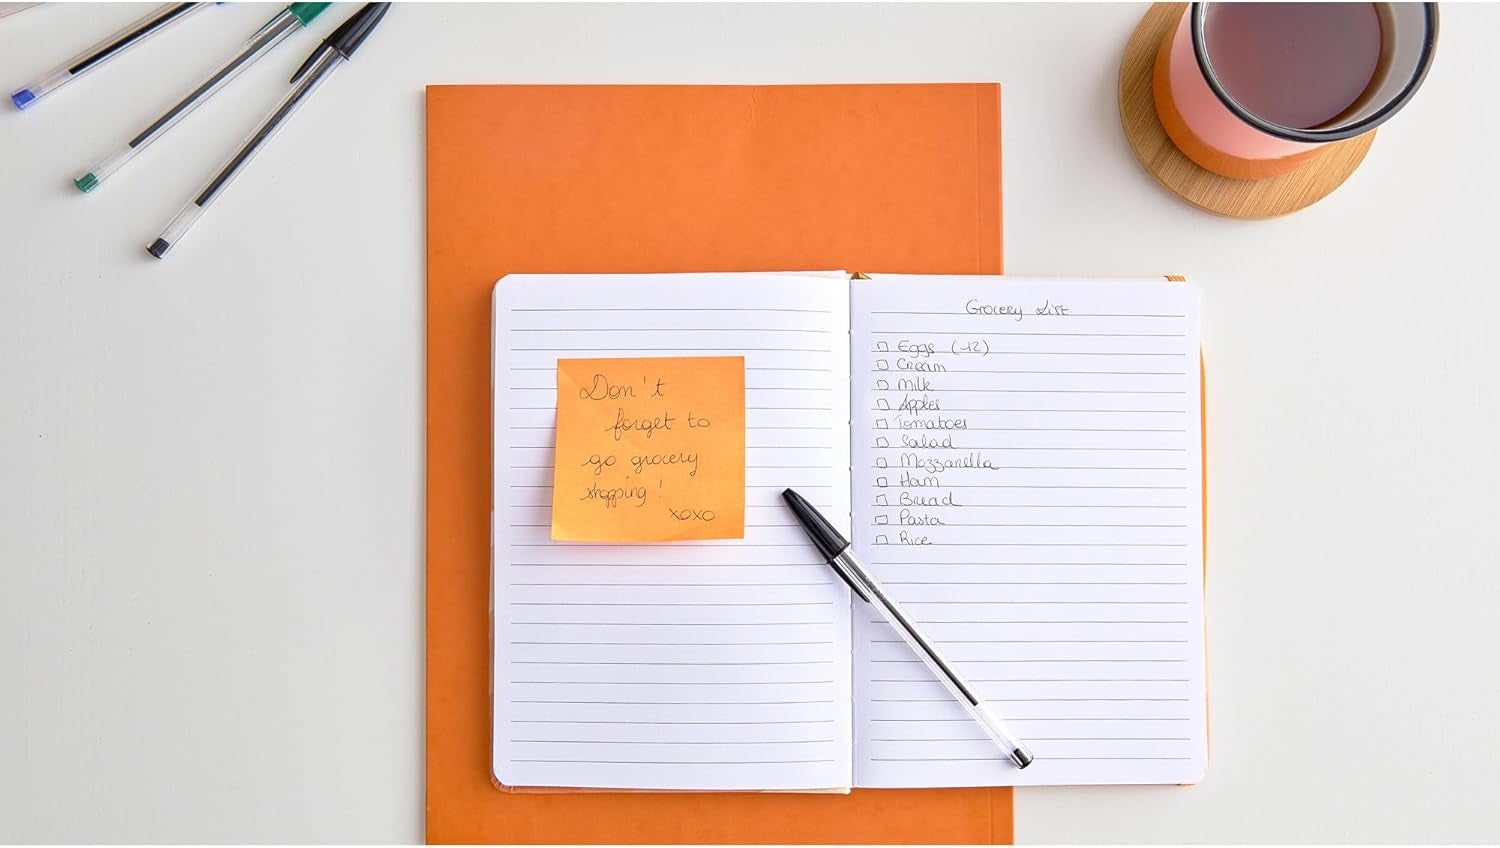 Don't
forget to
go grocery
shopping!
xoxo
Grocery List
Eggs (12)
Cream
Milk
Apples
Tomatoes
Salad
Mozzarella
Ham
Bread
Pasta
Rice